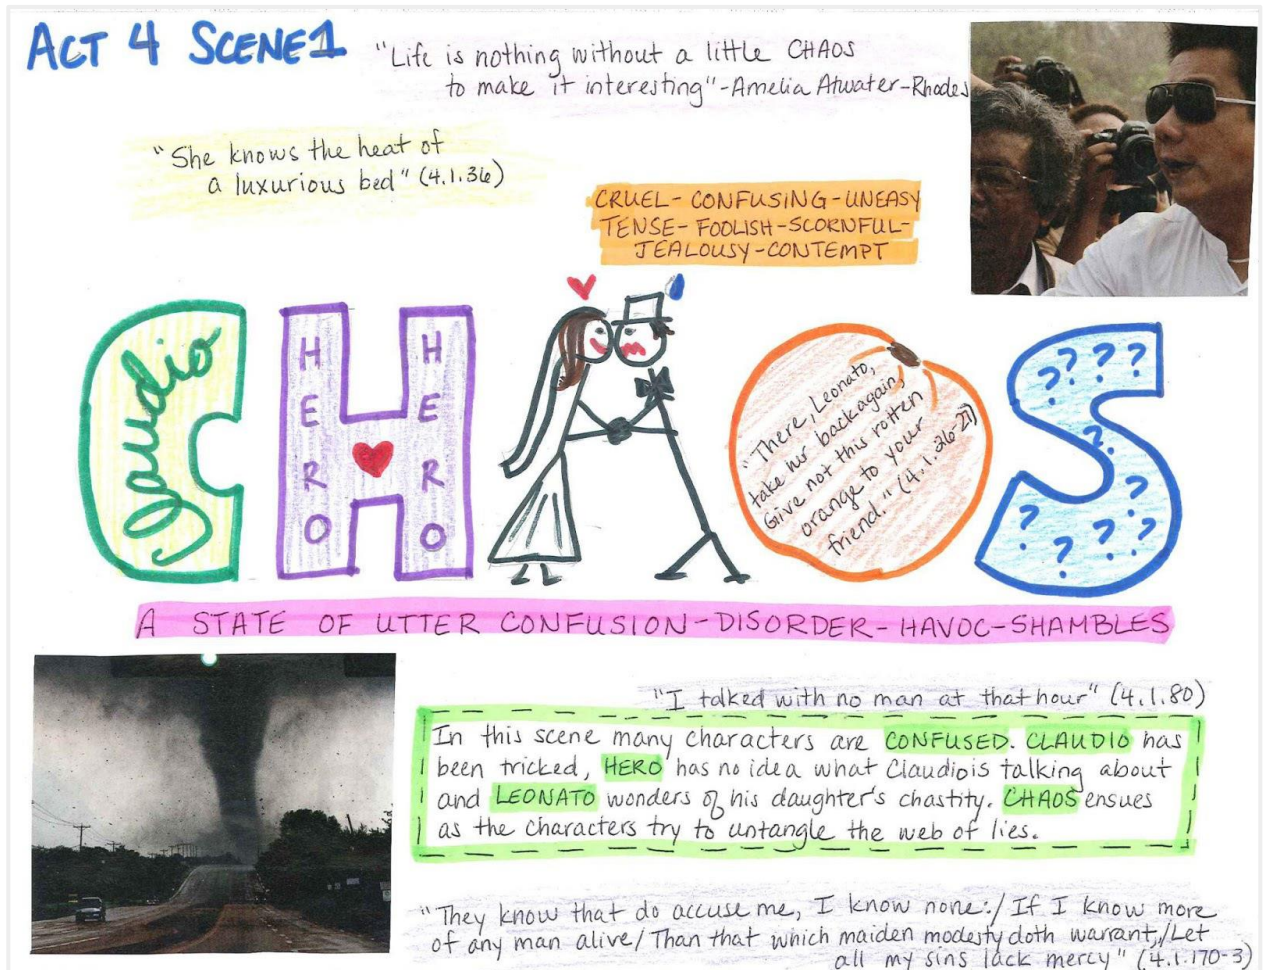 ACT 4 SCENE 1
"Life is nothing without a little CHAOS
to make it interesting"-Amelia Atwater-Rhodes
"She knows the heat of
a luxurious bed" (4.1.36)
CRUEL-CONFUSING-UNEASY
TENSE-FOOLISH-SCORNFUL-
JEALOUSY-CONTEMPT
CHAOS
Claudio
HERO
HERO
"There, Leonato,
take her back again,
Give not this rotten
orange to your
friend." (4.1.26-27)
? ? ? ?
?
?
? ? ? ? ?
A STATE OF UTTER CONFUSION-DISORDER-HAVOC-SHAMBLES
"I talked with no man at that hour" (4.1.80)
In this scene many characters are CONFUSED. CLAUDIO has
been tricked, HERO has no idea what Claudio is talking about
and LEONATO wonders of his daughter's chastity. CHAOS ensues
as the characters try to untangle the web of lies.
"They know that do accuse me, I know none:/ If I know more
of any man alive/ Than that which maiden modesty doth warrant,/Let
all my sins lack mercy" (4.1.170-3)